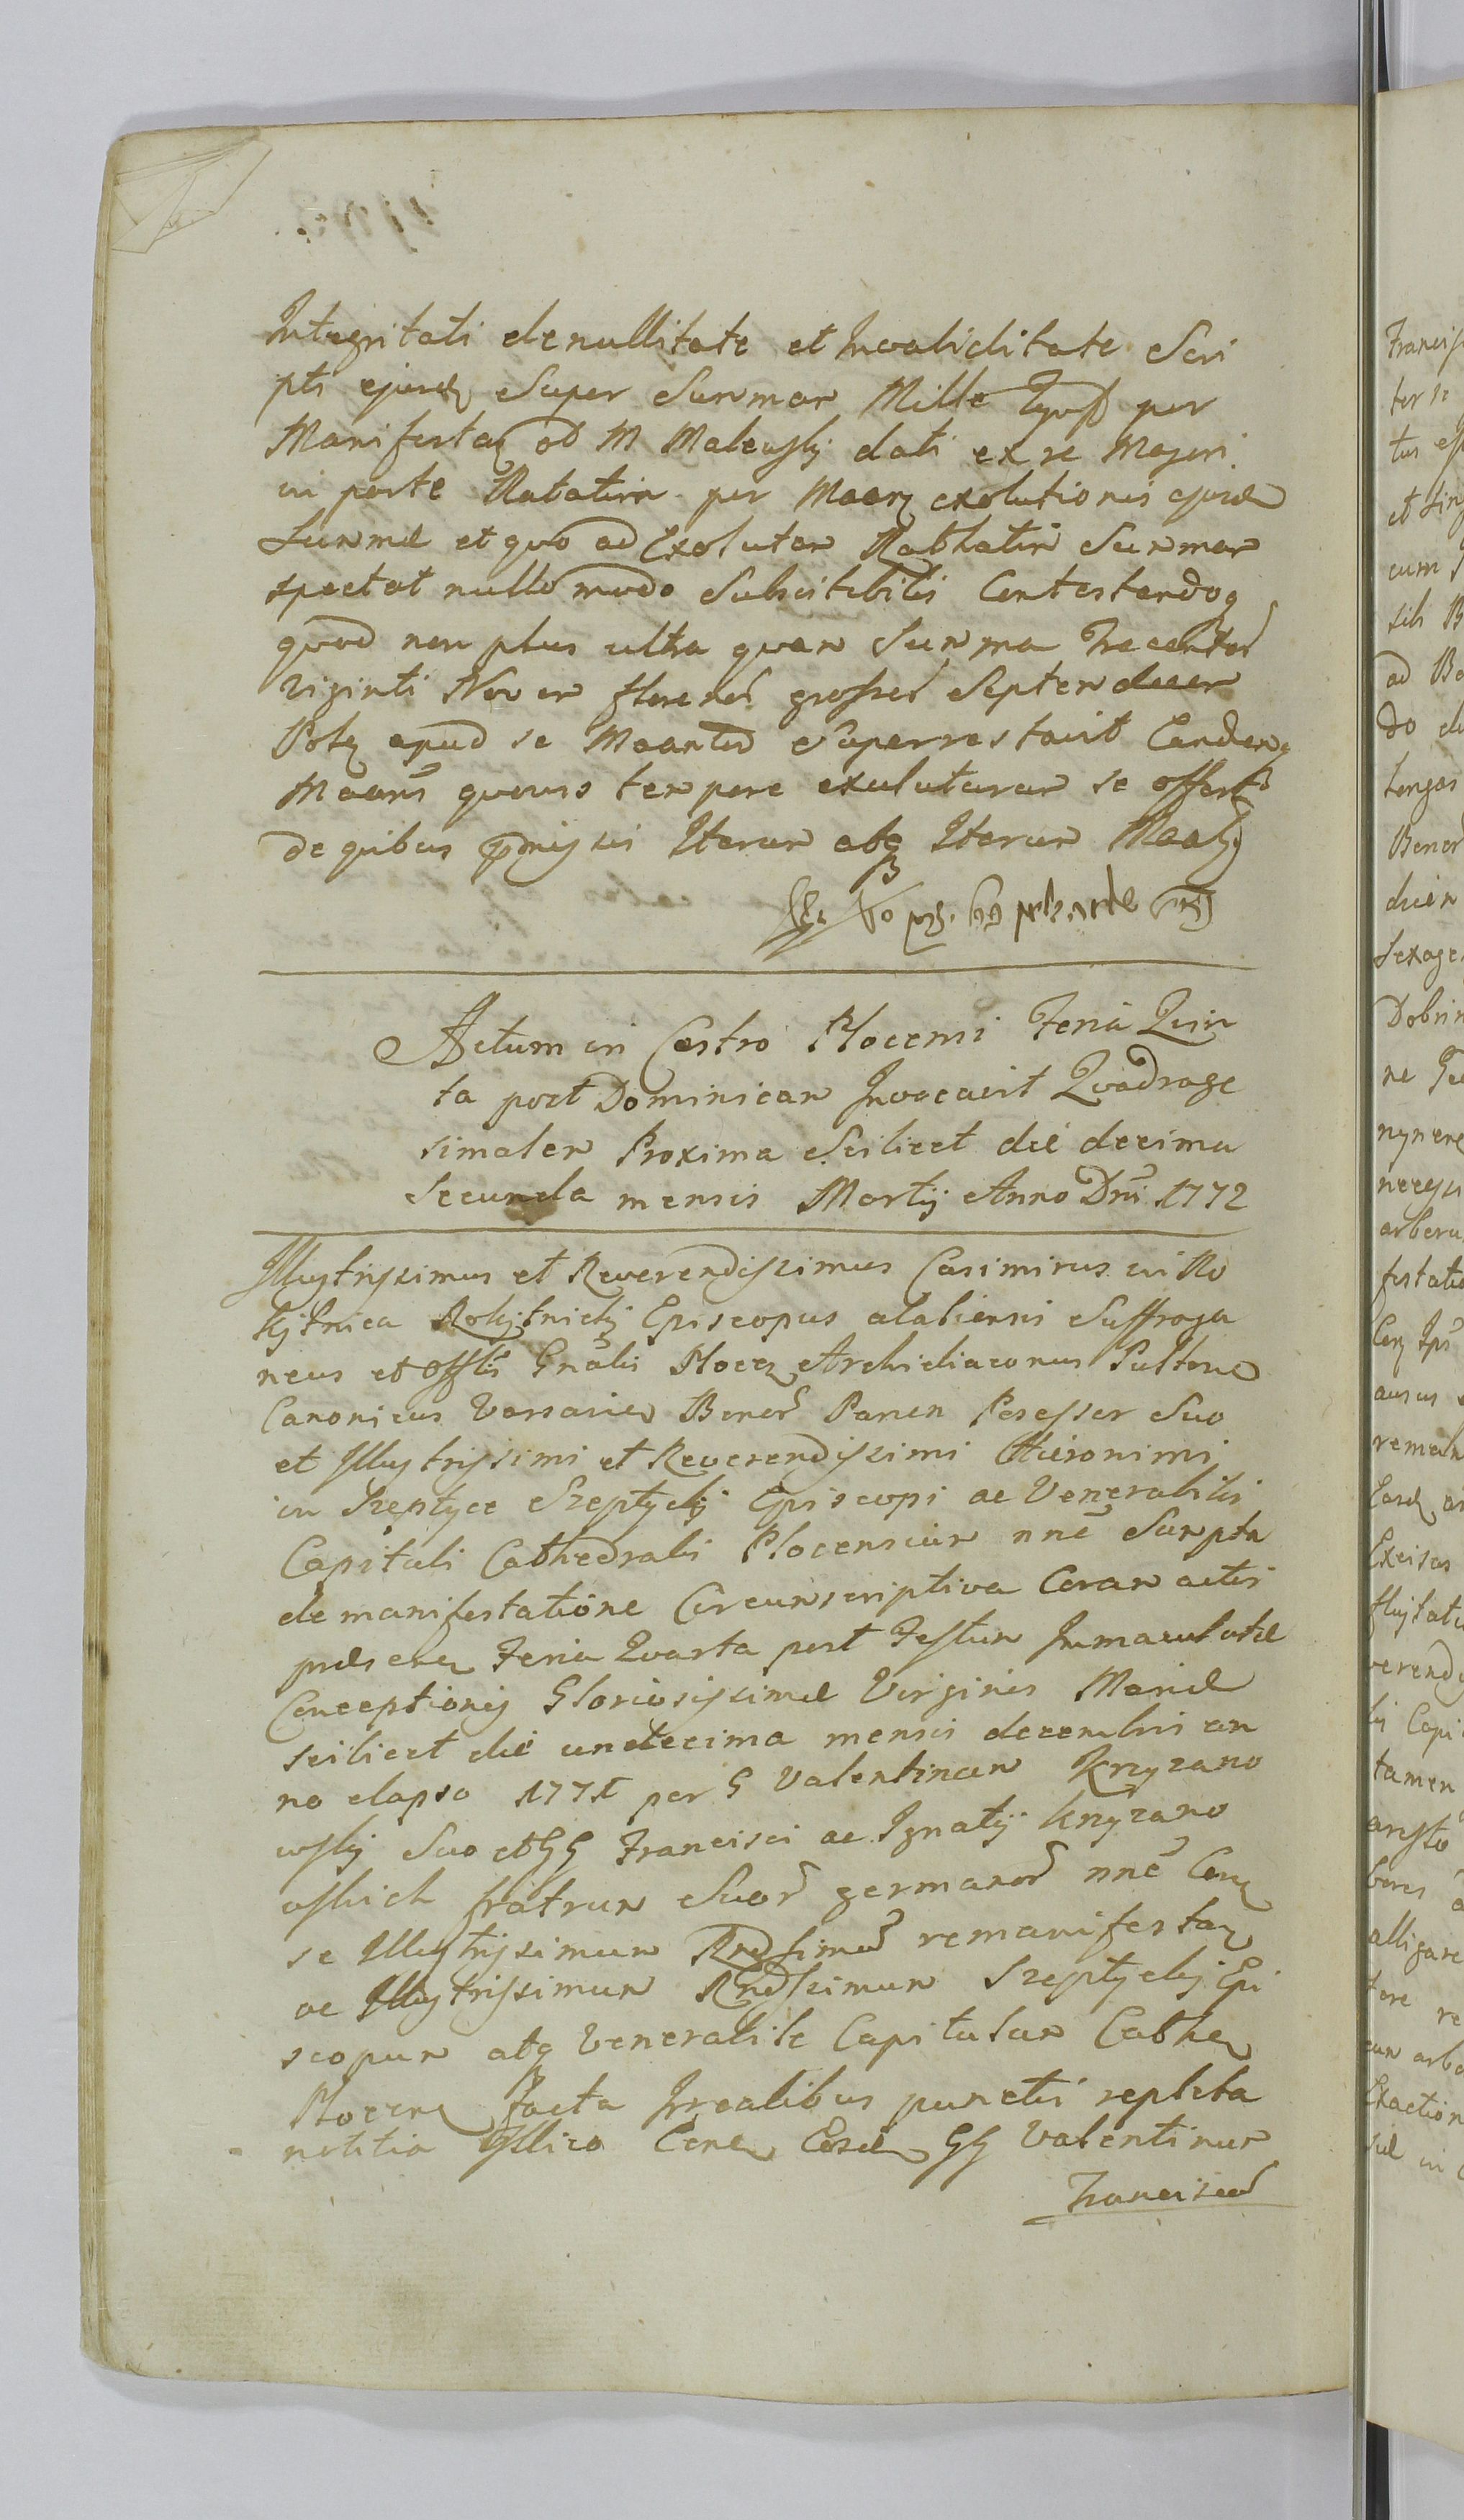 Integritati de nullitate et Invaliditate Scri
pti ejusd Super Summam Mille Tynf per
Manifestaq ad M Malewskj dati ex re Majori
in parte Rabatim per Maarq exolutionis ejusd
Summæ et quo ad Exolutam Rabbatim Summam
spectat nullo modo Subsistibilis Contestandoq
quod non plus ultra quam Summa Trecentor
viginti Novem florenor grosser Septemdecem
Polq apud se Maantem Superrestavit Eandemq
Maans quovis tempore exoluturum se offert
de quibus præmissis Iterum atq Iterum
Actum in Castro Plocensi Feria Quin
ta post Dominicam Invocavit Quadrage
simalem Proxima Scilicet die decima
Secunda mensis Martij Anno Dni 1772
Illustrissimus et Reverendissimus Casimirus in Ro
kitnica Rokitnickj Episcopus alaliensi Suffraga
neus et Offlis Gnalis Plocen Archidiaconus Pultove
Canonicus Varsavien Bonor Paren Posessor Suo
et Illustrissimi et Reverendissimi Hieronimi
in Szeptyce Szeptyckj Episcopi ac Venerabilis
Capituli Cathedralis Plocensium nne Sumpta
de manifestatione Circumscriptiva Coram actis
præsen Feria Quarta post Festum Immaculatæ
Conceptionis Gloriosissimæ Virginis Mariæ
scilicet die undecima mensis decembris an
no elapso 1771 per G Valentinum Krzyzano
wskj Suo et GG Francisci ac Ignatij Krzyzano
wskich fratrum Suor germanor nne Con
se Illustrissimum Rndssimum remanifestaq
ac Illustrissimum Rndssimum Szeptyckj Epi
scopum atq Venerabile Capitulum Cathe
Plocen facta Irrealibus punctis repleta
notitia Illico Con Eosd GG Valentinum
Franciscum